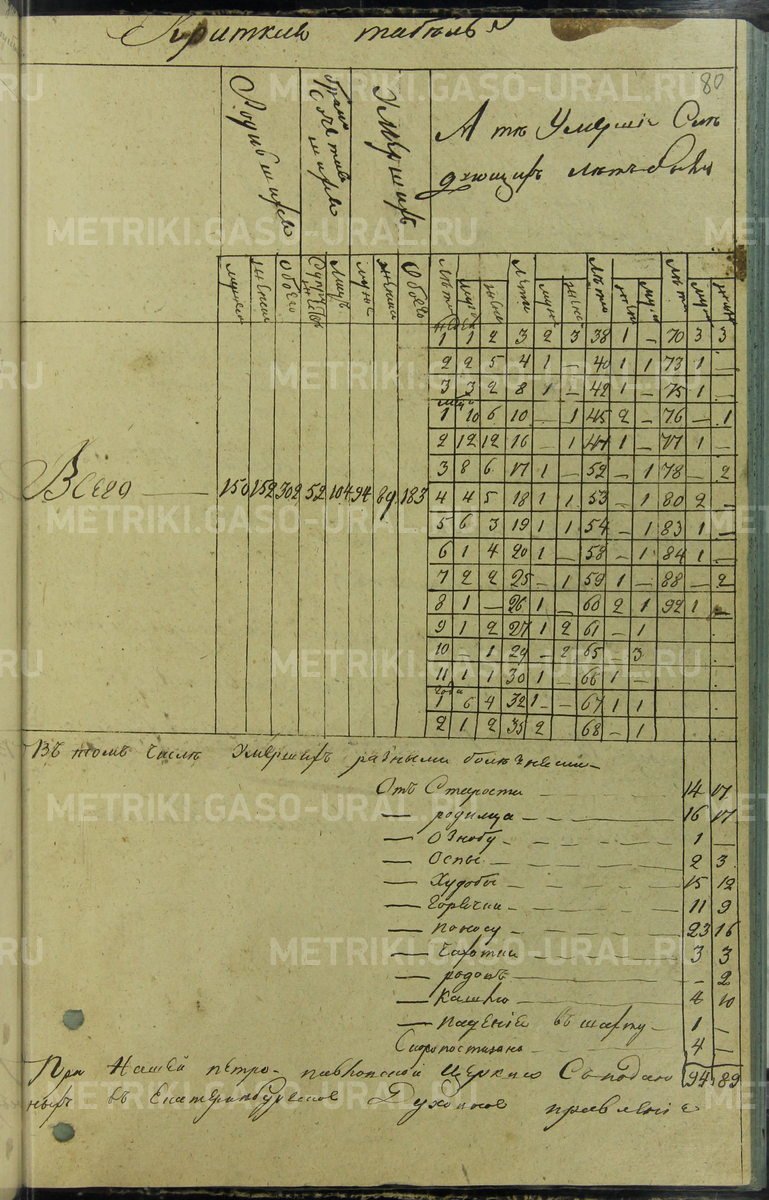 80
Краткии табель
Родившихся
браком сочетавшихся
Умершихъ
А тѣ Умершiи
лѣтъ были
мужеска женска Обоего Супружествъ Лицъ мужс женска Обоего Лѣта мужс женс Лѣта мужс женс Лѣта женс муж Лѣта муж женс
недели
1 1 2 3 2 3 38 1 - 70 3 3
2 2 5 4 1 - 40 1 1 73 1 -
3 3 2 8 1 - 42 1 - 75 1 -
месяцы
1 10 6 10 - 1 45 2 - 76 - 1
2 12 12 16 - 1 47 1 - 77 1 -
3 8 6 17 1 - 52 - 1 78 - 2
Всего 150 152 302 52 104 94 89 183
4 4 5 18 1 1 53 - 1 80 2 -
5 6 3 19 1 1 54 - 1 83 1 -
6 1 4 20 1 - 58 - 1 84 1 -
7 2 2 25 - 1 59 1 - 88 - 2
8 1 - 26 1 - 60 2 1 92 1 -
9 1 2 27 1 2 61 - 1
10 - 1 29 - 2 65 - 3
11 1 1 30 1 - 66 1 -
Года
1 6 4 32 1 - 67 1 1
2 1 2 35 2 68 - 1
Въ томъ числѣ Умершихъ разными болѣзнеми
Отъ Старости 14 17
— родимца 16 17
— Ознобу 1 —
— Оспы 2 3
— Худобы 15 12
— Горячки 11 9
— поносу 23 16
— Чахотки 3 3
— родовъ - 2
— Кашлю 4 10
— Падѣнiя въ шахту 1 —
Скоропостижно 4 —
При Нашей петро-павловской Церкви 94 89
въ Екатеринбургское Духовное правленiе
METRIKI.GASO-URAL.RU